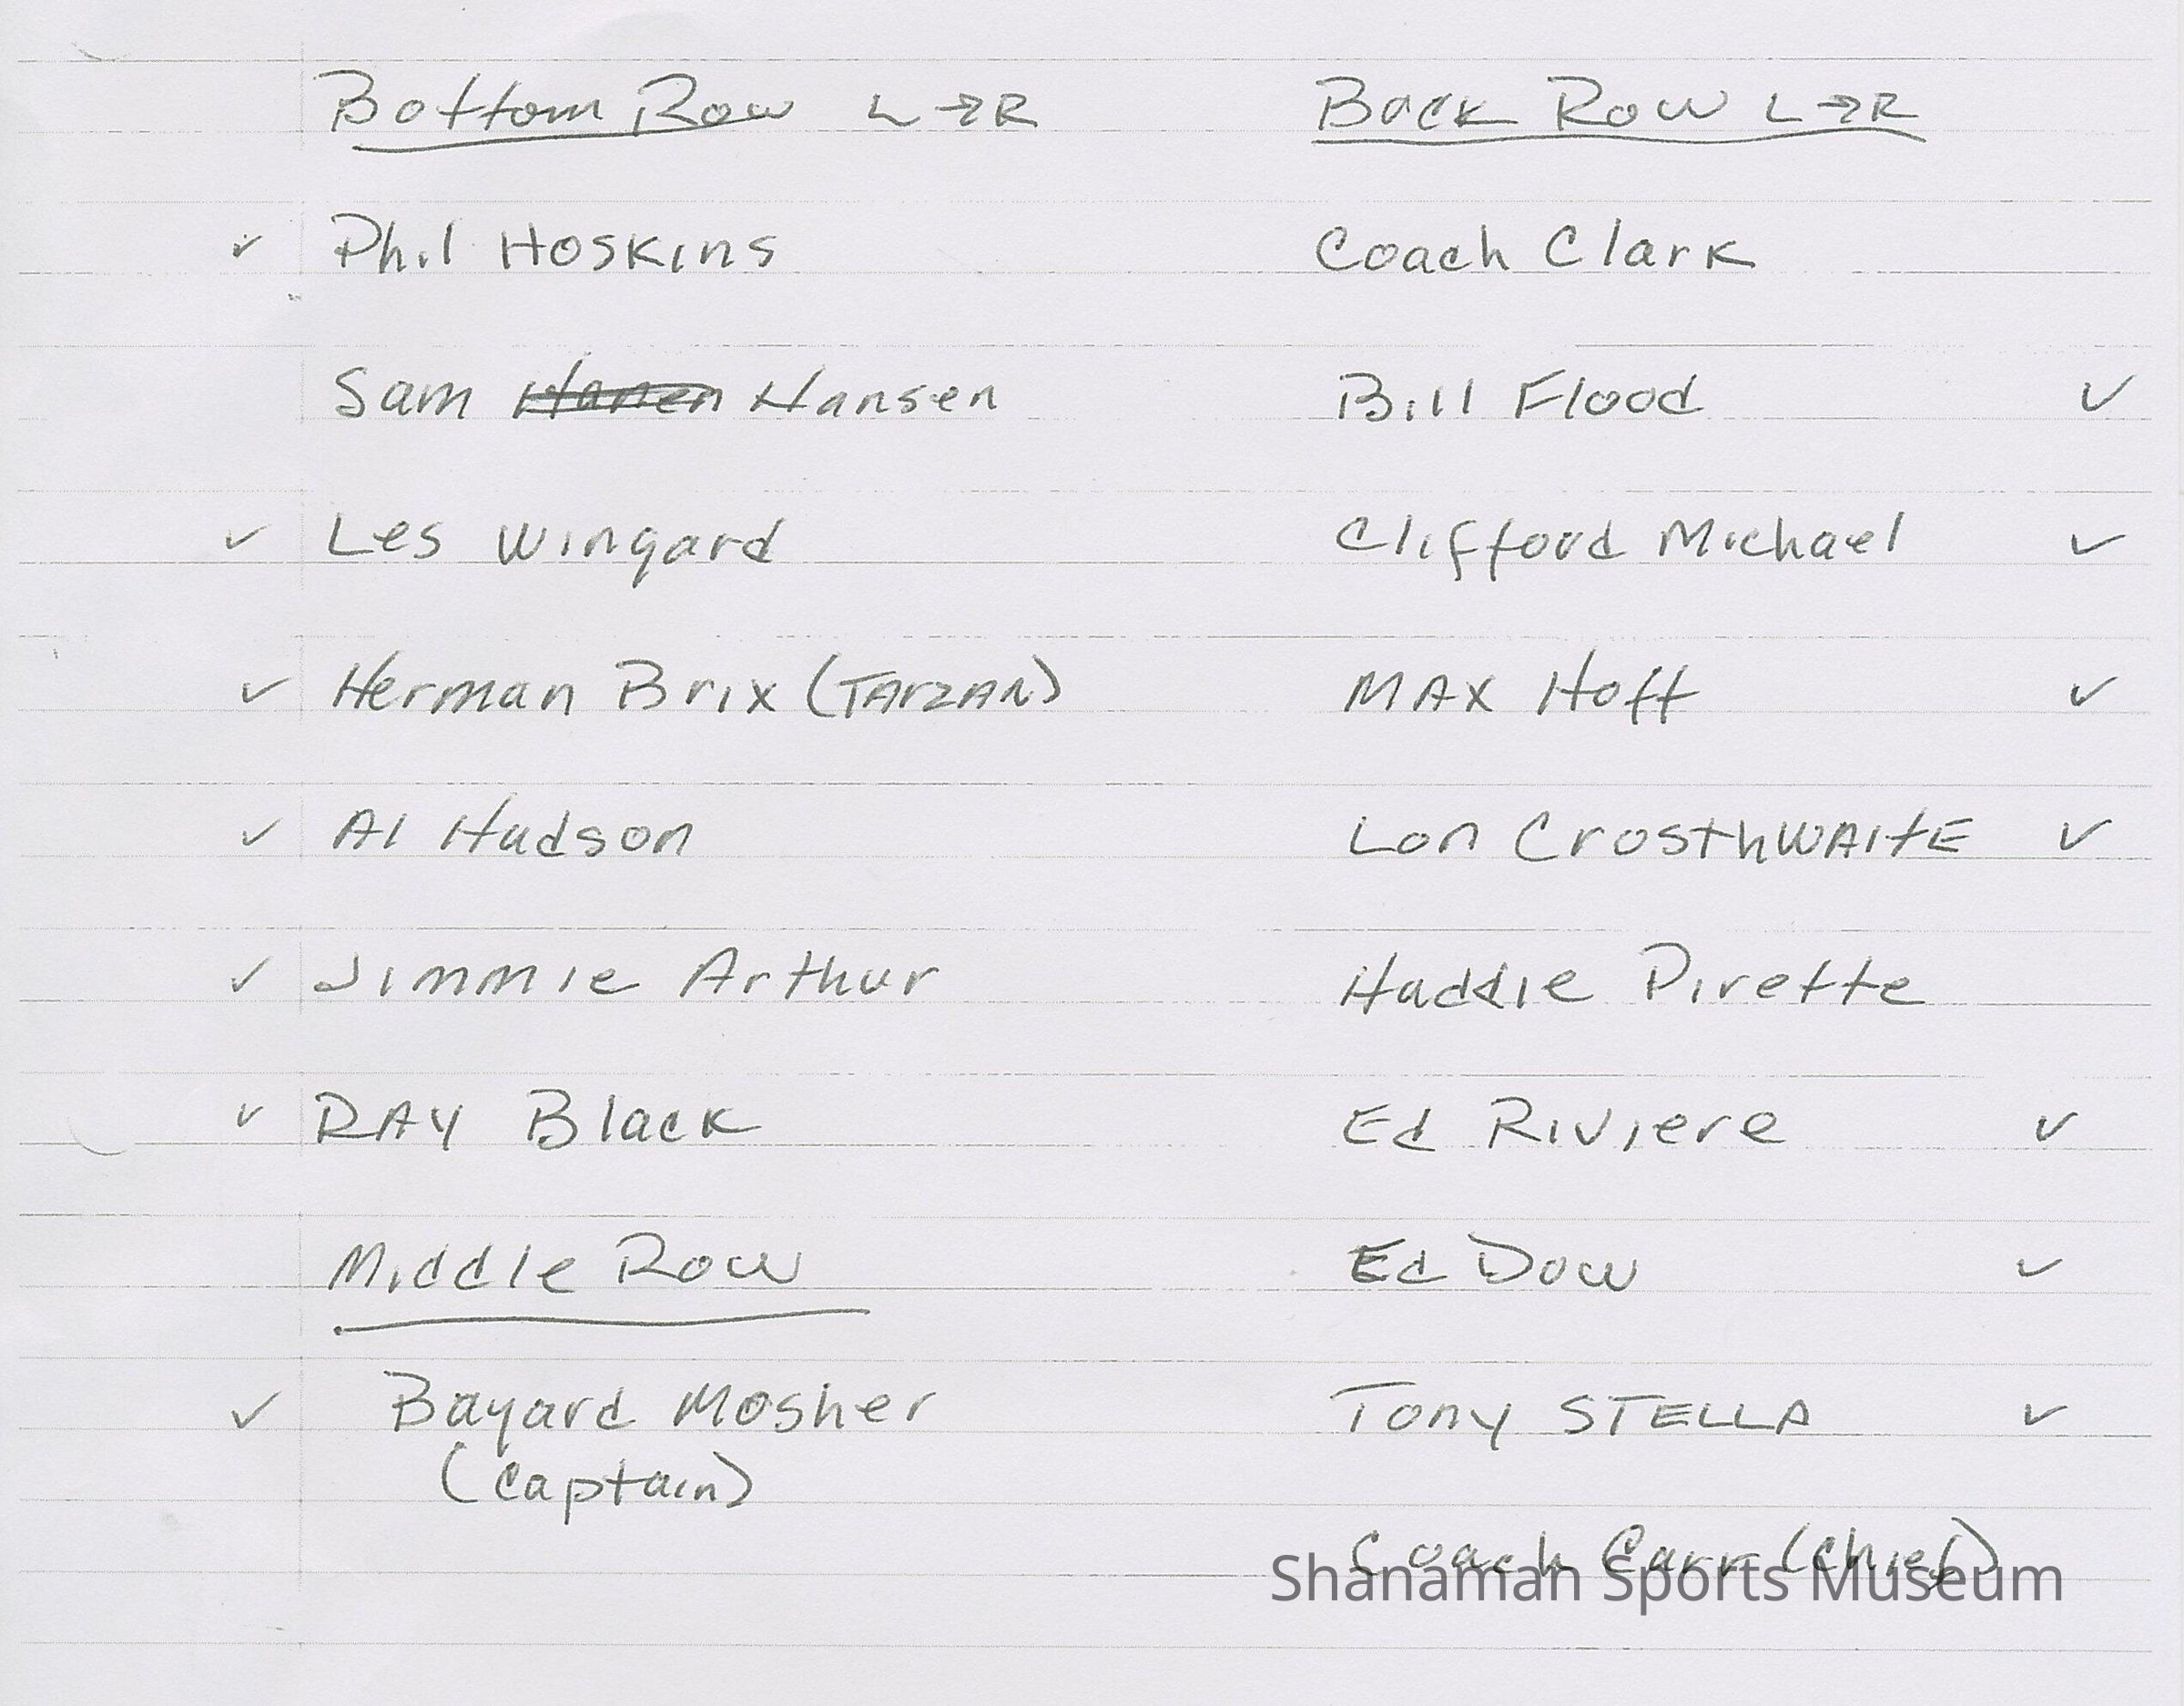 Bottom Row L→R
✓ Phil Hoskins
Sam Hanen Hansen
✓ Les Wingard
✓ Herman Brix (TARZAN)
✓ Al Hudson
✓ Jimmie Arthur
✓ RAY Black
Middle Row
✓ Bayard Mosher
(Captain)
Back Row L→R
Coach Clark
Bill Flood ✓
Clifford Michael ✓
MAX Hoff ✓
Lon CrosthWAItE ✓
Haddie Pirette
Ed Riviere ✓
Ed Dow ✓
Tony STELLA ✓
Coach Carr (Chief)
Shanaman Sports Museum